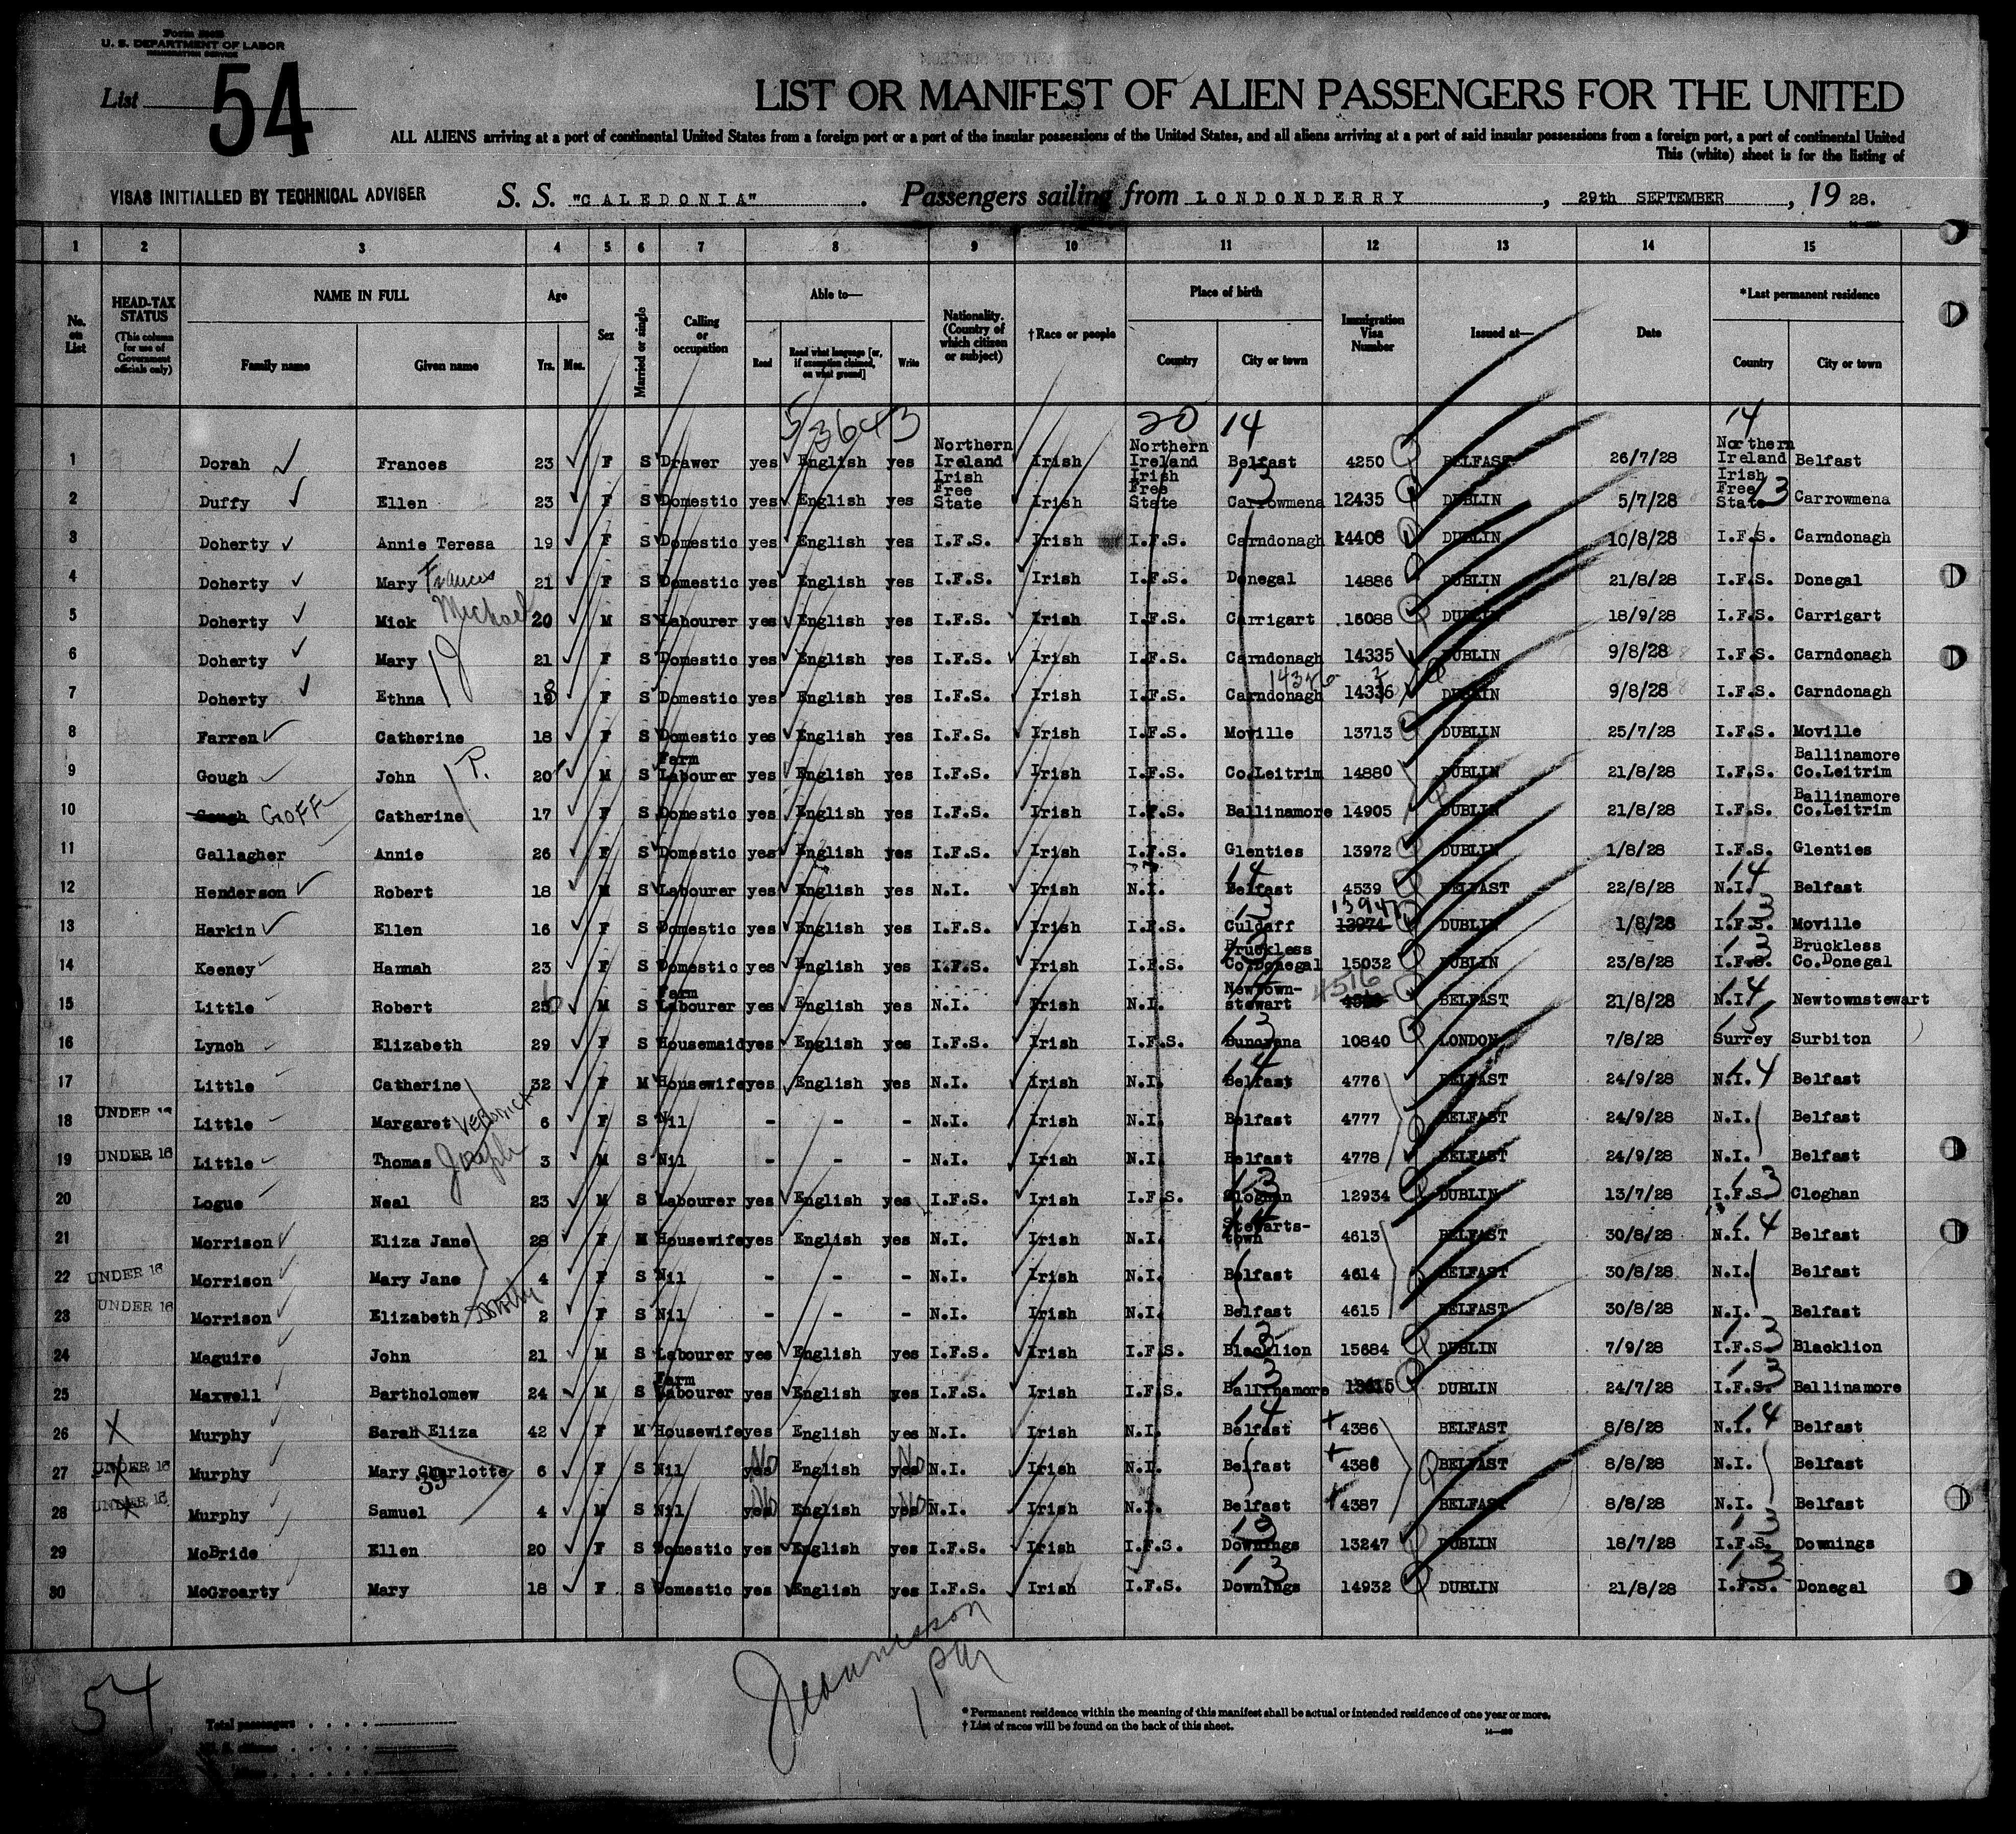 U. S. DEPARTMENT OF LABOR
List 54
LIST OR MANIFEST OF ALIEN PASSENGERS FOR THE UNITED
ALL ALIENS arriving at a port of continental United States from a foreign port or a port of the insular possessions of the United States, and all aliens arriving at a port of said insular possessions from a foreign port, a port of continental United
This (white) sheet is for the listing of
VISAS INITIALLED BY TECHNICAL ADVISER S. S. "CALEDONIA". Passengers sailing from LONDONDERRY, 29th SEPTEMBER, 19 28.
1 2 3 4 5 6 7 8 9 10 11 12 13 14 15
No. on List
HEAD-TAX STATUS (This column for use of Government officials only)
NAME IN FULL Family name Given name
Age Yrs. Mos.
Sex
Married or single
Calling or occupation
Able to— Read Read what language [or, if exemption claimed, on what ground] Write
Nationality. (Country of which citizen or subject)
†Race or people
Place of birth Country City or town
Immigration Visa Number
Issued at—
Date
*Last permanent residence Country City or town
53643 20 14 14
1 Dorah Frances 23 F S Drawer yes English yes Northern Ireland Irish Northern Ireland Belfast 4250 BELFAST 26/7/28 Northern Ireland Belfast
2 Duffy Ellen 23 F S Domestic yes English yes Irish Free State Irish Irish Free State Carrowmena 12435 DUBLIN 5/7/28 Irish Free State Carrowmena
3 Doherty Annie Teresa 19 F S Domestic yes English yes I.F.S. Irish I.F.S. Carndonagh 14408 DUBLIN 10/8/28 I.F.S. Carndonagh
4 Doherty Mary Frances 21 F S Domestic yes English yes I.F.S. Irish I.F.S. Donegal 14886 DUBLIN 21/8/28 I.F.S. Donegal
5 Doherty Mick Michael 20 M S Labourer yes English yes I.F.S. Irish I.F.S. Carrigart 16088 DUBLIN 18/9/28 I.F.S. Carrigart
6 Doherty Mary 21 F S Domestic yes English yes I.F.S. Irish I.F.S. Carndonagh 14335 DUBLIN 9/8/28 I.F.S. Carndonagh
7 Doherty Ethna F S Domestic yes English yes I.F.S. Irish I.F.S. Carndonagh 14336 DUBLIN 9/8/28 I.F.S. Carndonagh
8 Farren Catherine 18 F S Domestic yes English yes I.F.S. Irish I.F.S. Moville 13713 DUBLIN 25/7/28 I.F.S. Moville
9 Gough John P. 20 M S Farm Labourer yes English yes I.F.S. Irish I.F.S. Co.Leitrim 14880 DUBLIN 21/8/28 I.F.S. Ballinamore Co.Leitrim
10 Gough GOFF Catherine 17 F S Domestic yes English yes I.F.S. Irish I.F.S. Ballinamore 14905 DUBLIN 21/8/28 I.F.S. Ballinamore Co.Leitrim
11 Gallagher Annie 26 F S Domestic yes English yes I.F.S. Irish I.F.S. Glenties 13972 DUBLIN 1/8/28 I.F.S. Glenties
12 Henderson Robert 18 M S Labourer yes English yes N.I. Irish N.I. Belfast 4539 BELFAST 22/8/28 N.I. Belfast
13 Harkin Ellen 16 F S Domestic yes English yes I.F.S. Irish I.F.S. Culdaff 13974 DUBLIN 1/8/28 I.F.S. Moville
14 Keeney Hannah 23 F S Domestic yes English yes I.F.S. Irish I.F.S. Bruckless Co.Donegal 15032 DUBLIN 23/8/28 I.F.S. Bruckless Co.Donegal
15 Little Robert M S Farm Labourer yes English yes N.I. Irish N.I. Newtown-stewart 4516 BELFAST 21/8/28 N.I. Newtownstewart
16 Lynch Elizabeth 29 F S Housemaid yes English yes I.F.S. Irish I.F.S. Buncrana 10840 LONDON 7/8/28 Surrey Surbiton
17 Little Catherine 32 F M Housewife yes English yes N.I. Irish N.I. Belfast 4776 BELFAST 24/9/28 N.I. Belfast
18 UNDER 16 Little Margaret VERONICA 6 F S Nil - - - N.I. Irish N.I. Belfast 4777 BELFAST 24/9/28 N.I. Belfast
19 UNDER 16 Little Thomas Joseph 3 M S Nil - - - N.I. Irish N.I. Belfast 4778 BELFAST 24/9/28 N.I. Belfast
20 Logue Neal 23 M S Labourer yes English yes I.F.S. Irish I.F.S. Cloghan 12934 DUBLIN 13/7/28 I.F.S. Cloghan
21 Morrison Eliza Jane 28 F M Housewife yes English yes N.I. Irish N.I. Stewarts-town 4613 BELFAST 30/8/28 N.I. Belfast
22 UNDER 16 Morrison Mary Jane 4 F S Nil - - - N.I. Irish N.I. Belfast 4614 BELFAST 30/8/28 N.I. Belfast
23 UNDER 16 Morrison Elizabeth Dorothy 2 F S Nil - - - N.I. Irish N.I. Belfast 4615 BELFAST 30/8/28 N.I. Belfast
24 Maguire John 21 M S Labourer yes English yes I.F.S. Irish I.F.S. Blacklion 15684 DUBLIN 7/9/28 I.F.S. Blacklion
25 Maxwell Bartholomew 24 M S Farm Labourer yes English yes I.F.S. Irish I.F.S. Ballinamore DUBLIN 24/7/28 I.F.S. Ballinamore
26 X Murphy Sarah Eliza 42 F M Housewife yes English yes N.I. Irish N.I. Belfast 4386 BELFAST 8/8/28 N.I. Belfast
27 UNDER 16 Murphy Mary Charlotte 39 6 F S Nil yes No English yes No N.I. Irish N.I. Belfast 4388 BELFAST 8/8/28 N.I. Belfast
28 UNDER 16 Murphy Samuel 4 M S Nil yes No English yes No N.I. Irish N.I. Belfast 4387 BELFAST 8/8/28 N.I. Belfast
29 McBride Ellen 20 F S Domestic yes English yes I.F.S. Irish I.F.S. Downings 13247 DUBLIN 18/7/28 I.F.S. Downings
30 McGroarty Mary 18 F S Domestic yes English yes I.F.S. Irish I.F.S. Downings 14932 DUBLIN 21/8/28 I.F.S. Donegal
54
Total passengers
* Permanent residence within the meaning of this manifest shall be actual or intended residence of one year or more.
† List of races will be found on the back of this sheet.